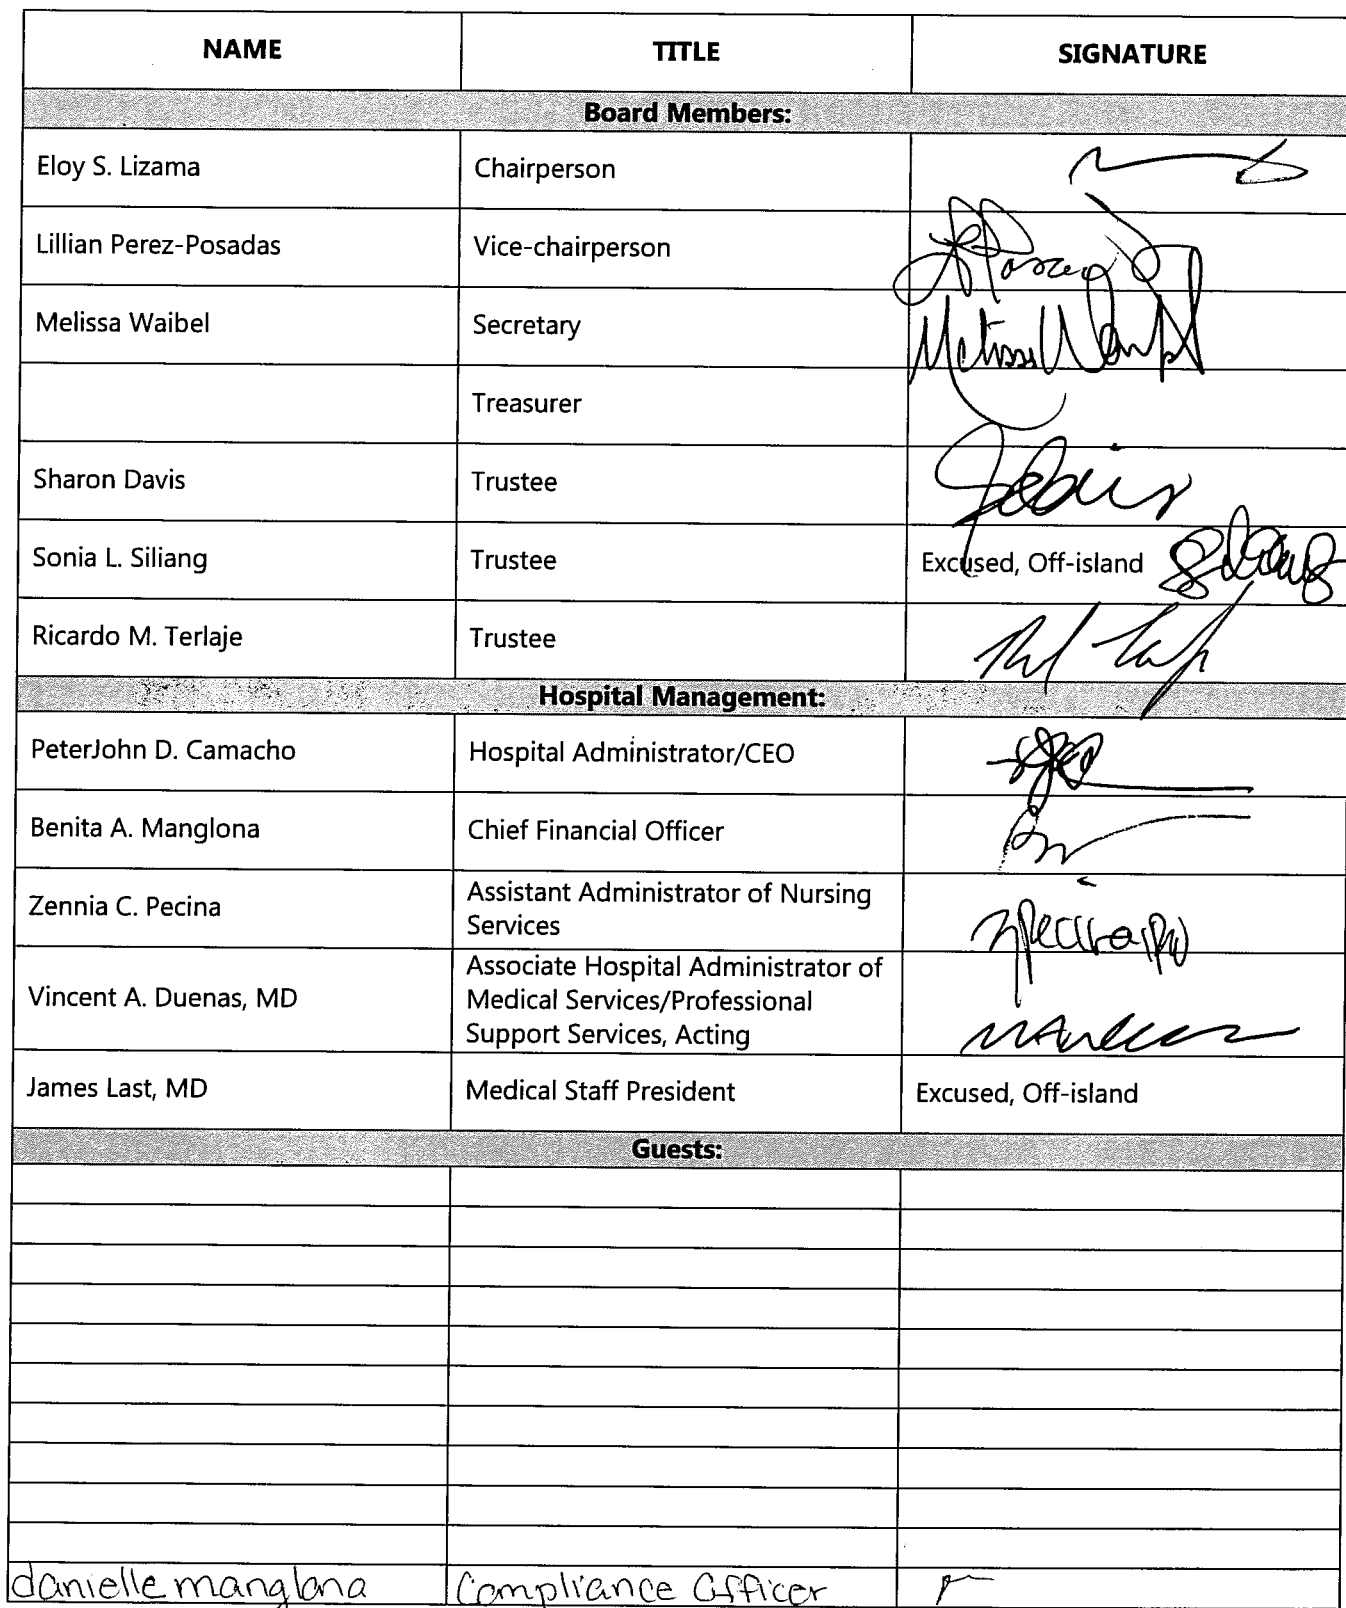 NAME TITLE SIGNATURE
Board Members:
Eloy S. Lizama Chairperson
Lillian Perez-Posadas Vice-chairperson
Melissa Waibel Secretary Melissa Waibel
Treasurer
Sharon Davis Trustee
Sonia L. Siliang Trustee Excused, Off-island
Ricardo M. Terlaje Trustee
Hospital Management:
PeterJohn D. Camacho Hospital Administrator/CEO
Benita A. Manglona Chief Financial Officer
Zennia C. Pecina Assistant Administrator of Nursing
Services
Vincent A. Duenas, MD Associate Hospital Administrator of
Medical Services/Professional
Support Services, Acting
James Last, MD Medical Staff President Excused, Off-island
Guests:
danielle manglona Compliance Officer